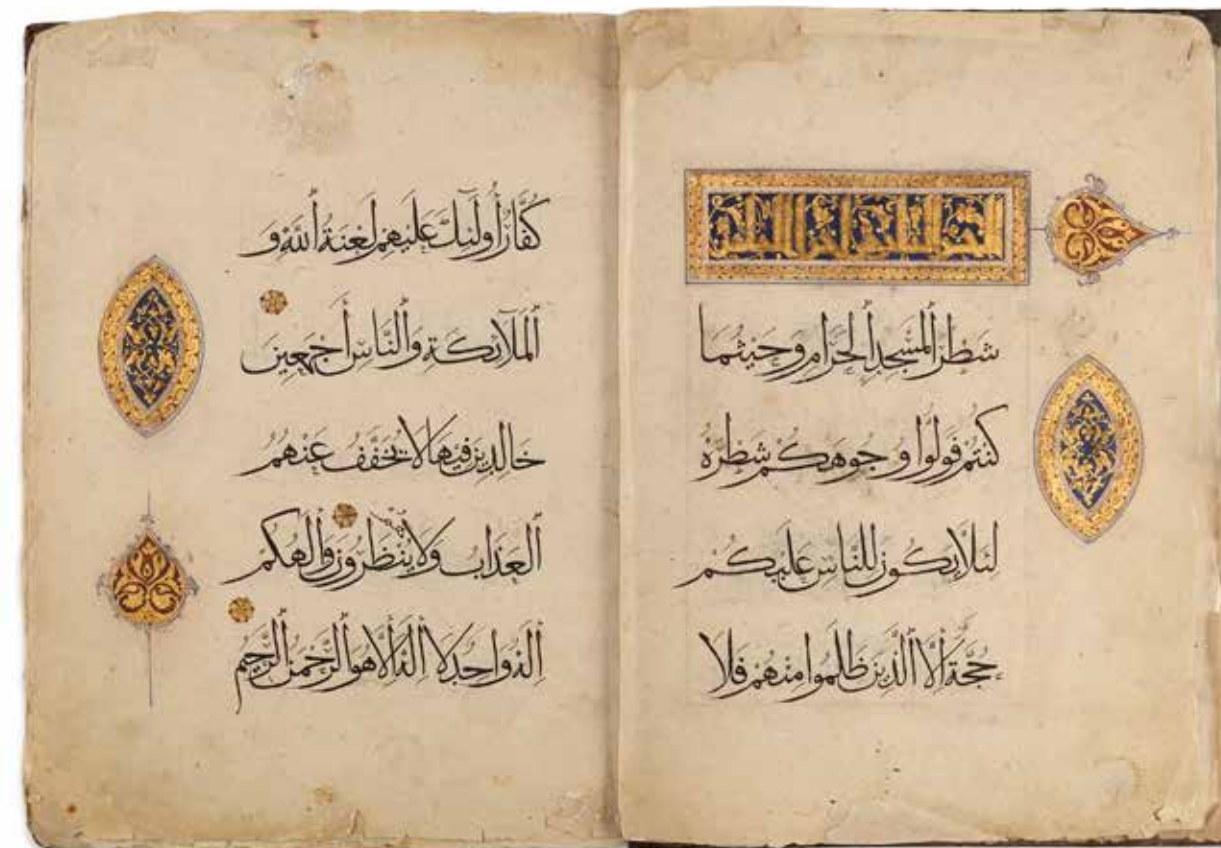 شَطْرَ ٱلْمَسْجِدِ ٱلْحَرَامِ وَحَيْثُمَا
كُنْتُمْ فَوَلُّوا وُجُوهَكُمْ شَطْرَهُ
لِئَلَّا يَكُونَ لِلنَّاسِ عَلَيْكُمْ
حُجَّةٌ إِلَّا ٱلَّذِينَ ظَلَمُوا مِنْهُمْ فَلَا
كُفَّارٌ أُولَئِكَ عَلَيْهِمْ لَعْنَةُ ٱللَّهِ وَ
ٱلْمَلَائِكَةِ وَٱلنَّاسِ أَجْمَعِينَ
خَالِدِينَ فِيهَا لَا يُخَفَّفُ عَنْهُمُ
ٱلْعَذَابُ وَلَا يُنْظَرُونَ وَإِلَهُكُمْ
إِلَهٌ وَاحِدٌ لَا إِلَهَ إِلَّا هُوَ ٱلرَّحْمَنُ ٱلرَّحِيمُ